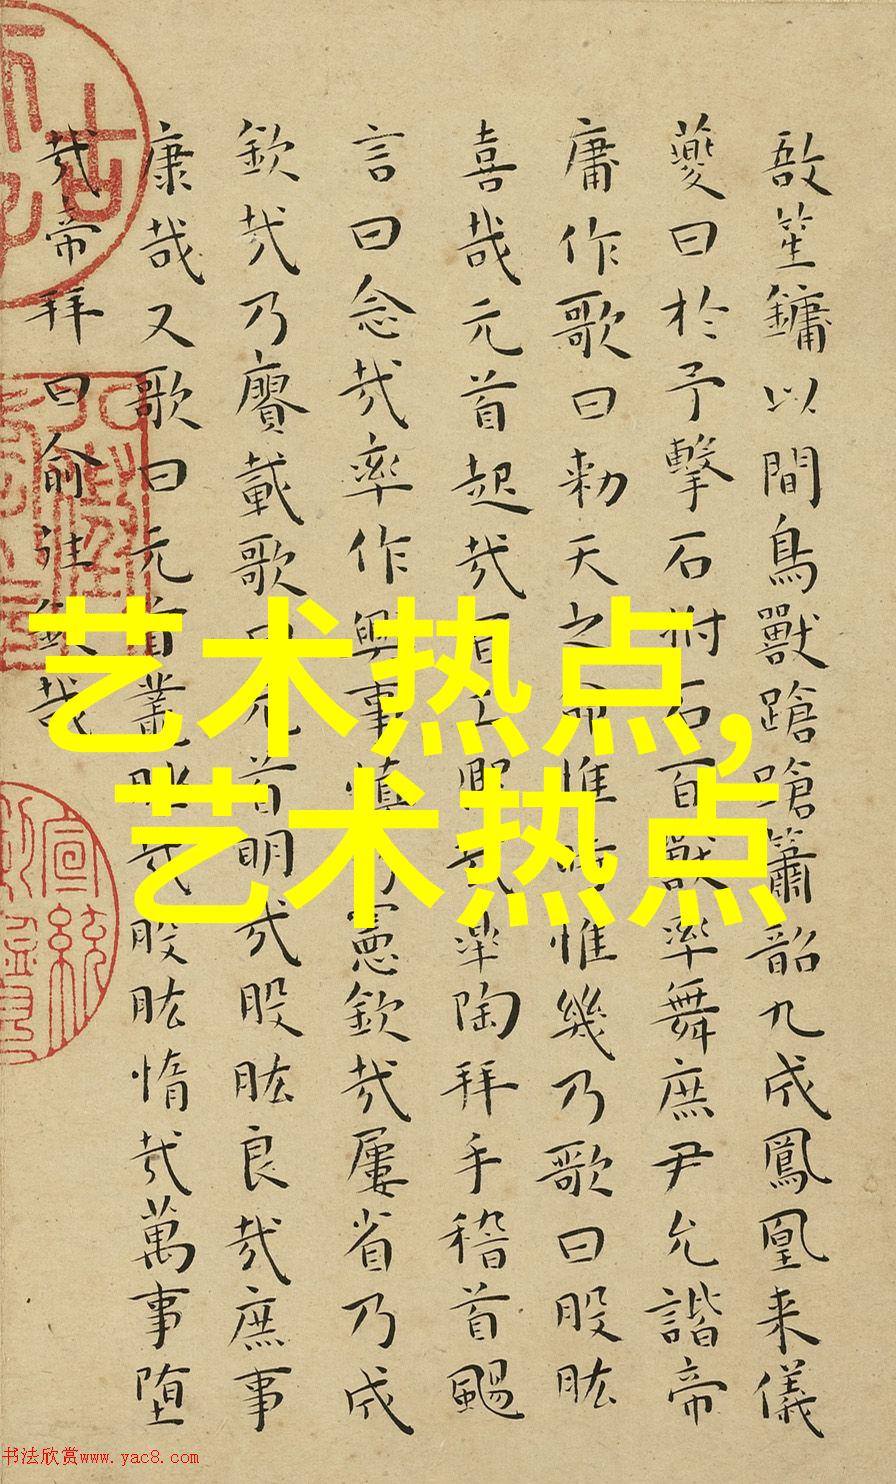 敔笙鏞以間鳥獸蹌嗆簫韶九成鳳凰来儀
夔曰於予擊石拊石百獸率舞庶尹允諧帝
庸作歌曰勑天之命惟時惟幾乃歌曰股肱
喜哉元首起哉百工熙哉皋陶拜手稽首颺
言曰念哉率作興事慎乃憲欽哉屢省乃成
欽哉乃賡載歌曰元首明哉股肱良哉庶事
康哉又歌曰元首叢脞哉股肱惰哉萬事堕
哉帝拜曰俞往欽哉
艺术热点,
艺术热点
宣統
书法欣赏www.yac8.com